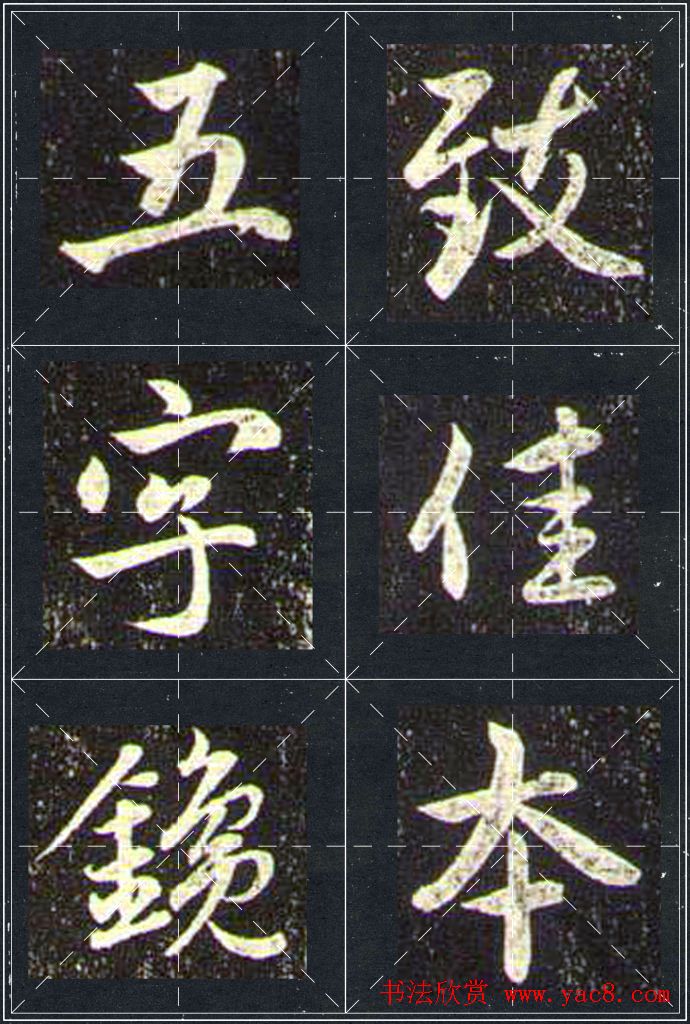 致佳本
五字鑱
书法欣赏 www.yac8.com